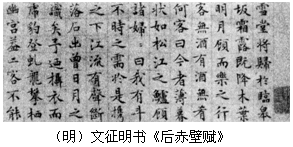 雪堂將歸於臨皋
坂霜露既降木葉
明月顧而樂之行
客無酒有酒無肴
何客曰今者薄暮
狀如松江之鱸顧
諸婦〻曰我有斗
不時之需於是攜
之下江流有聲斷
落石出曾日月之
識矣予乃攝衣而
虎豹登虬龍攀栖
幽宮蓋二客不能
（明）文征明书《后赤壁赋》